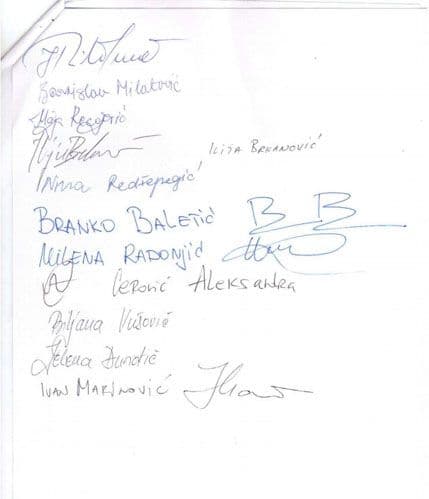 Branislav Milatović
Maja Regojević
Ilija Brkanović
Nina Redžepagić
BRANKO BALETIĆ B B
MILENA RADONJIĆ
CEROVIĆ ALEKSANDRA
Biljana Vušović
Jelena Đundić
IVAN MARINOVIĆ